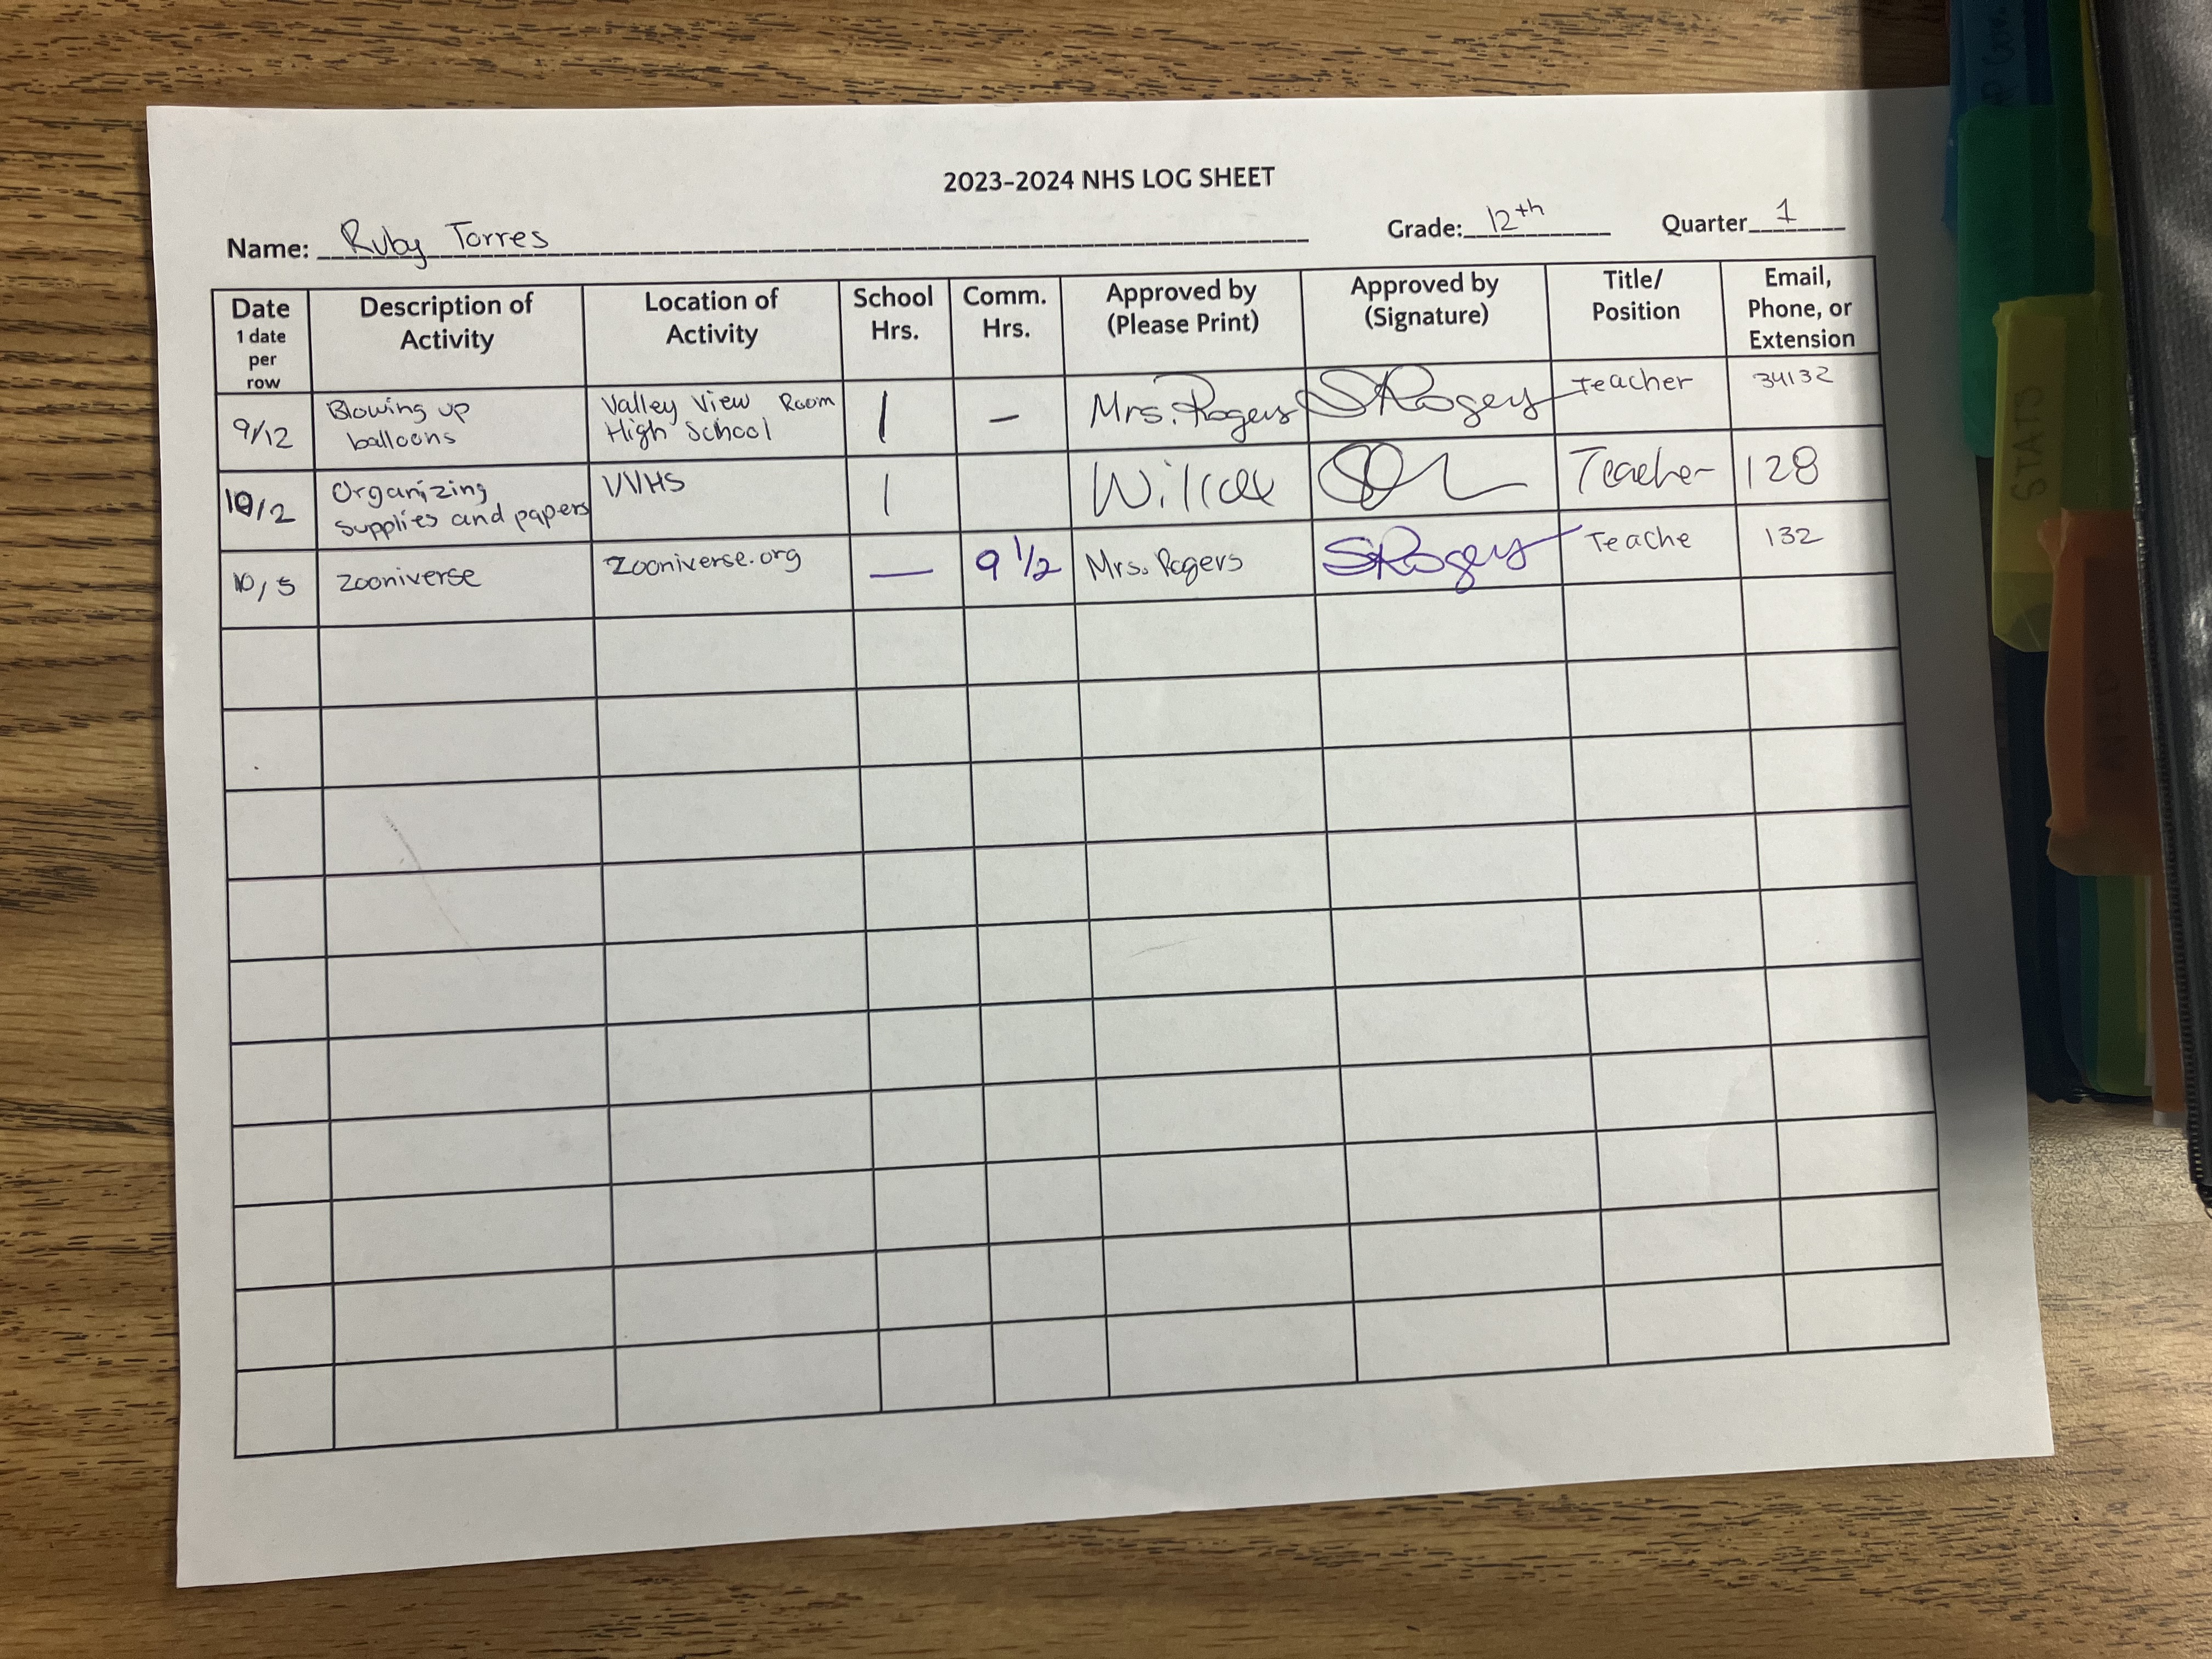 2023-2024 NHS LOG SHEET
Name: Ruby Torres Grade: 12th Quarter 1
Date 1 date per row
Description of Activity
Location of Activity
School Hrs.
Comm. Hrs.
Approved by (Please Print)
Approved by (Signature)
Title/ Position
Email, Phone, or Extension
9/12
Blowing up
balloons
Valley View Room
High School
1
-
Mrs. Rogers
SRogers
Teacher
34132
10/2
Organizing
supplies and papers
VVHS
1
Teacher
128
10/5
Zooniverse
Zooniverse.org
—
9 1/2
Mrs. Rogers
SRogers
Teache
132
STATS
AVID